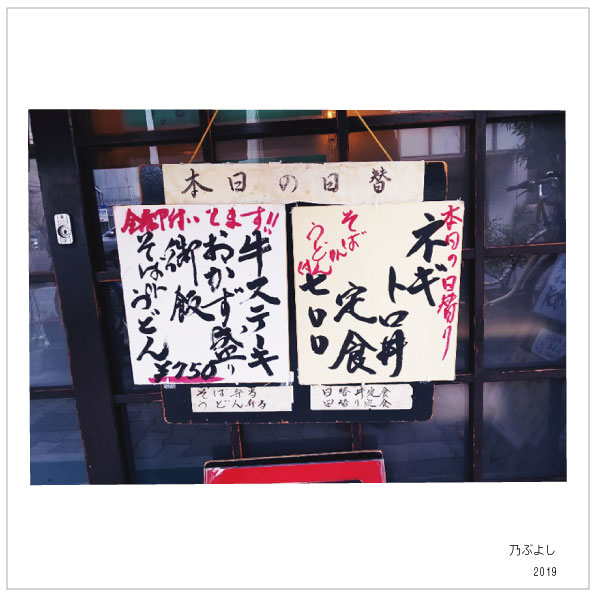 本日の日替
本日の日替り
ネギ
トロ丼
定食
そば
うどん
全部付いてます!!
牛ステーキ
おかず盛り
御飯
そばorうどん
¥750
そば弁当
うどん弁当
日替丼定食
日替り定食
乃ぶよし
2019